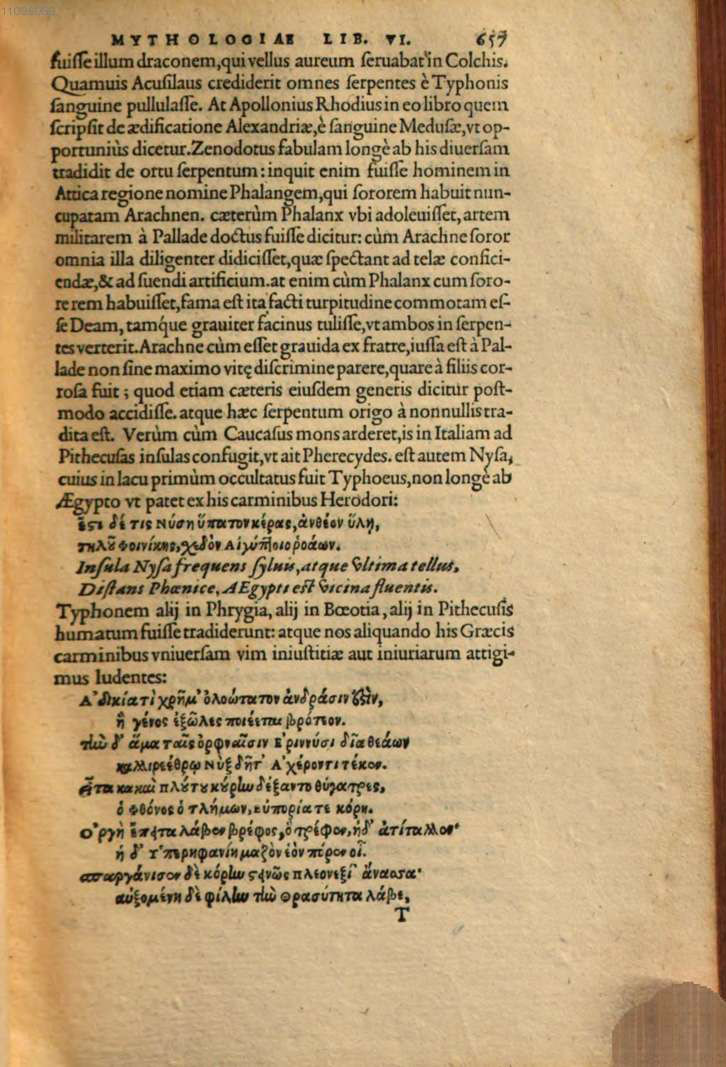 MYTHOLOGIAE LIB. VI. 657
fuisse illum draconem, qui vellus aureum seruabat in Colchis.
Quamuis Acusilaus crediderit omnes serpentes è Typhonis
sanguine pullulasse. At Apollonius Rhodius in eo libro quem
scripsit de ædificatione Alexandriæ, è sanguine Medusæ, vt op-
portuniùs dicetur. Zenodotus fabulam longè ab his diuersam
tradidit de ortu serpentum: inquit enim fuisse hominem in
Attica regione nomine Phalangem, qui sororem habuit nun-
cupatam Arachnen. cæterùm Phalanx vbi adoleuisset, artem
militarem à Pallade doctus fuisse dicitur: cùm Arachne soror
omnia illa diligenter didicisset, quæ spectant ad telæ confici-
endæ, & ad suendi artificium. at enim cùm Phalanx cum soro-
re rem habuisset, fama est ita facti turpitudine commotam es-
se Deam, tamq́ue grauiter facinus tulisse, vt ambos in serpen-
tes verterit. Arachne cùm esset grauida ex fratre, iussa est à Pal-
lade non sine maximo vitę discrimine parere, quare à filiis cor-
rosa fuit; quod etiam cæteris eiusdem generis dicitur post-
modo accidisse. atque hæc serpentum origo à nonnullis tra-
dita est. Verùm cùm Caucasus mons arderet, is in Italiam ad
Pithecusas insulas confugit, vt ait Pherecydes. est autem Nysa,
cuius in lacu primùm occultatus fuit Typhoeus, non longè ab
Ægypto vt patet ex his carminibus Herodori:
ἔστι δέ τις Νύση ὕπατον κέρας, ἀνθέον ὕλῃ,
τηλοῦ Φοινίκης, χεδὸν Αἰγύπτοιο ῥοάων.
Insula Nysa frequens syluis, atque vltima tellus,
Distans Phœnice, AEgypti est vicina fluentis.
Typhonem alij in Phrygia, alij in Bœotia, alij in Pithecusis
humatum fuisse tradiderunt: atque nos aliquando his Græcis
carminibus vniuersam vim iniustitiæ aut iniuriarum attigi-
mus ludentes:
Ἀδικία τὶ χρῆμ' ὀλοώτατον ἀνδράσιν
ἣ γένος ἐξῶλες ποιέεται βρότεον.
τὴν δ' ἅμα ταῖς ὀρφναῖσιν Ἐριννύσι διᾶ θεάων
καλλιρεέθρῳ Νὺξ δῆτ' Ἀχέροντι τέκον.
κακαὶ πλούτου κύρην δέξαντο θύγατρες,
ὁ Φθόνος ὁ τλήμων, εὐπορία τε κόρη.
Ὀργὴ ἔπειτα λάβον βρέφος, ὁ τρέφον, ἠδ' ἀτίταλλον·
ἡ δ' Ὑπερηφανίη μαζὸν ἑὸν πόρον οἷ.
σπαργάνισον δὲ κόρην πλεονεξί' ἄναοσα·
αὐξομένη δὲ φίλην τὴν Θρασύτητα λάβε,
T